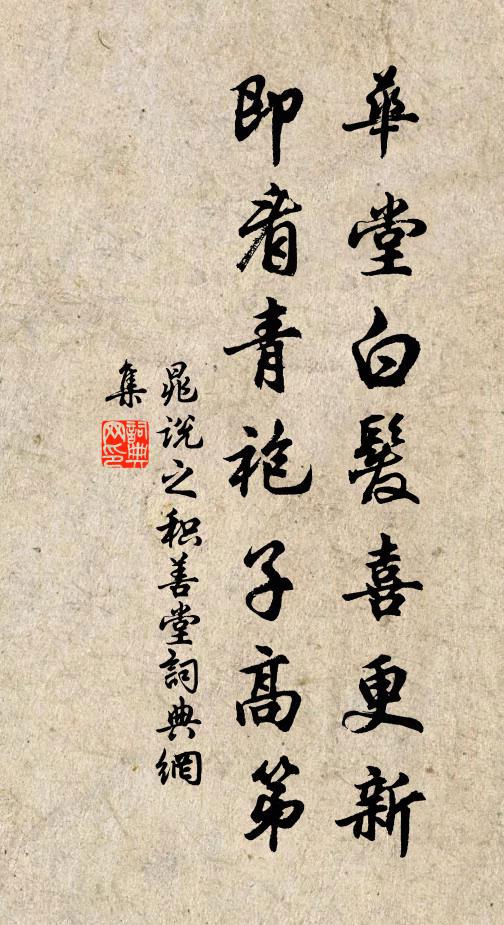 華堂白髮喜更新
即看青袍子高第
晁說之積善堂詞典網
集
詞典
网印